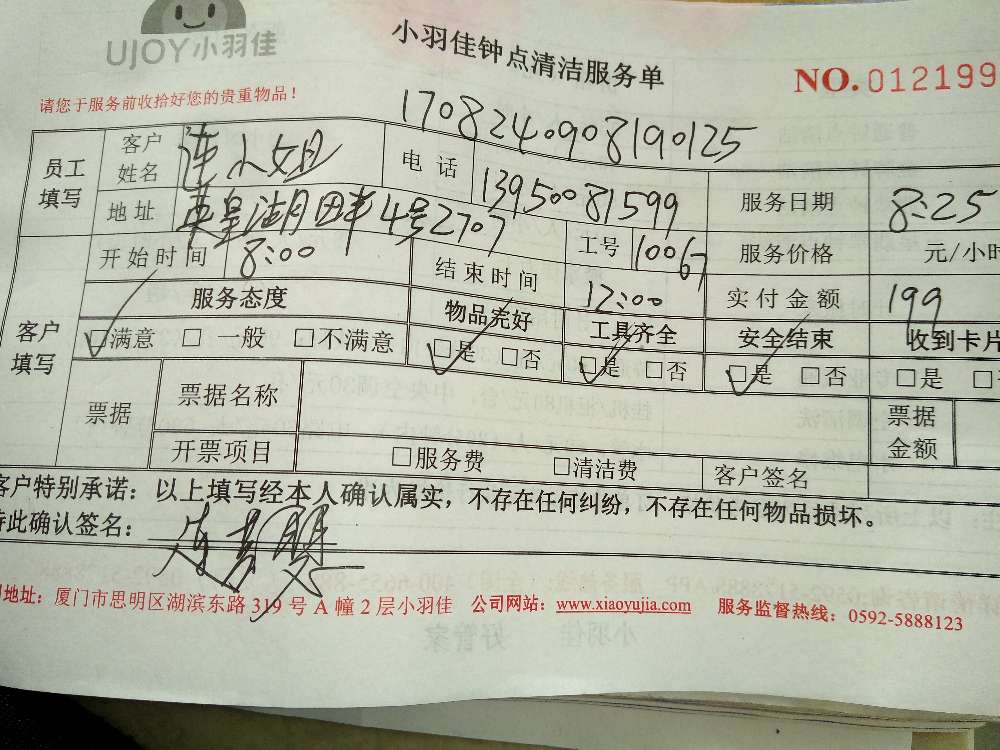 UJOY小羽佳
小羽佳钟点清洁服务单
NO. 012199
请您于服务前收拾好您的贵重物品！
1708240908190125
员工填写 客户姓名 连小姐 电话 13950081599 服务日期 8:25
地址 英皇湖月田半4号2707 工号 10067 服务价格 元/小时
客户填写 开始时间 8:00 结束时间 12:00 实付金额 199
服务态度 物品完好 工具齐全 安全结束 收到卡片
☑满意 □一般 □不满意 ☑是 □否 ☑是 □否 ☑是 □否 □是
票据 票据名称 票据金额
开票项目 □服务费 □清洁费 客户签名
客户特别承诺：以上填写经本人确认属实，不存在任何纠纷，不存在任何物品损坏。
特此确认签名：
地址：厦门市思明区湖滨东路319号A幢2层小羽佳 公司网站：www.xiaoyujia.com 服务监督热线：0592-5888123
小羽佳 好管家